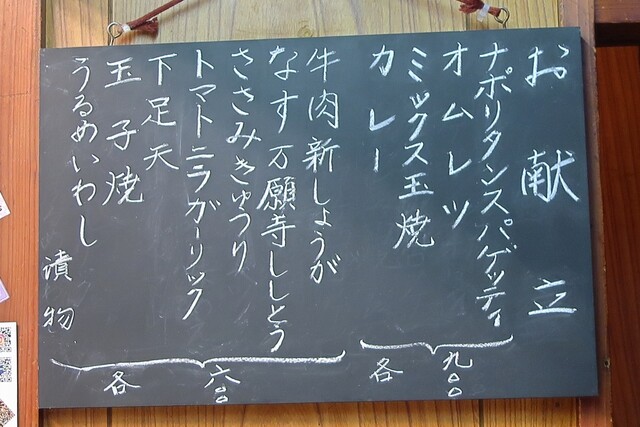 お献立
ナポリタンスパゲッティ
オムレツ
ミックス玉焼
カレー
各九〇〇
牛肉新しょうが
なす万願寺ししとう
ささみきゅうり
トマトニラガーリック
下足天
玉子焼
うるめいわし
漬物
各六〇〇